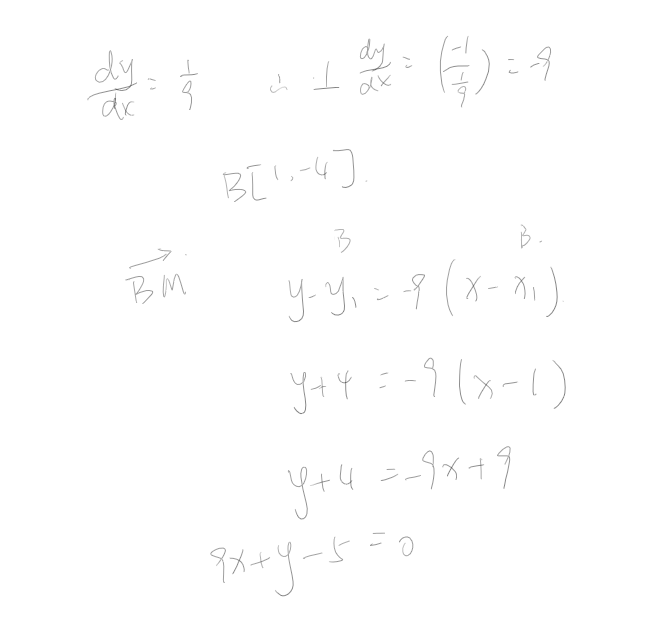 dy/dx = 1/9 ∴ ⊥ dy/dx = (-1/(1/9)) = -9
B[1,-4].
B B.
BM⃗ y-y₁ = -9(x-x₁)
y+4 = -9(x-1)
y+4 = -9x+9
9x+y-5=0